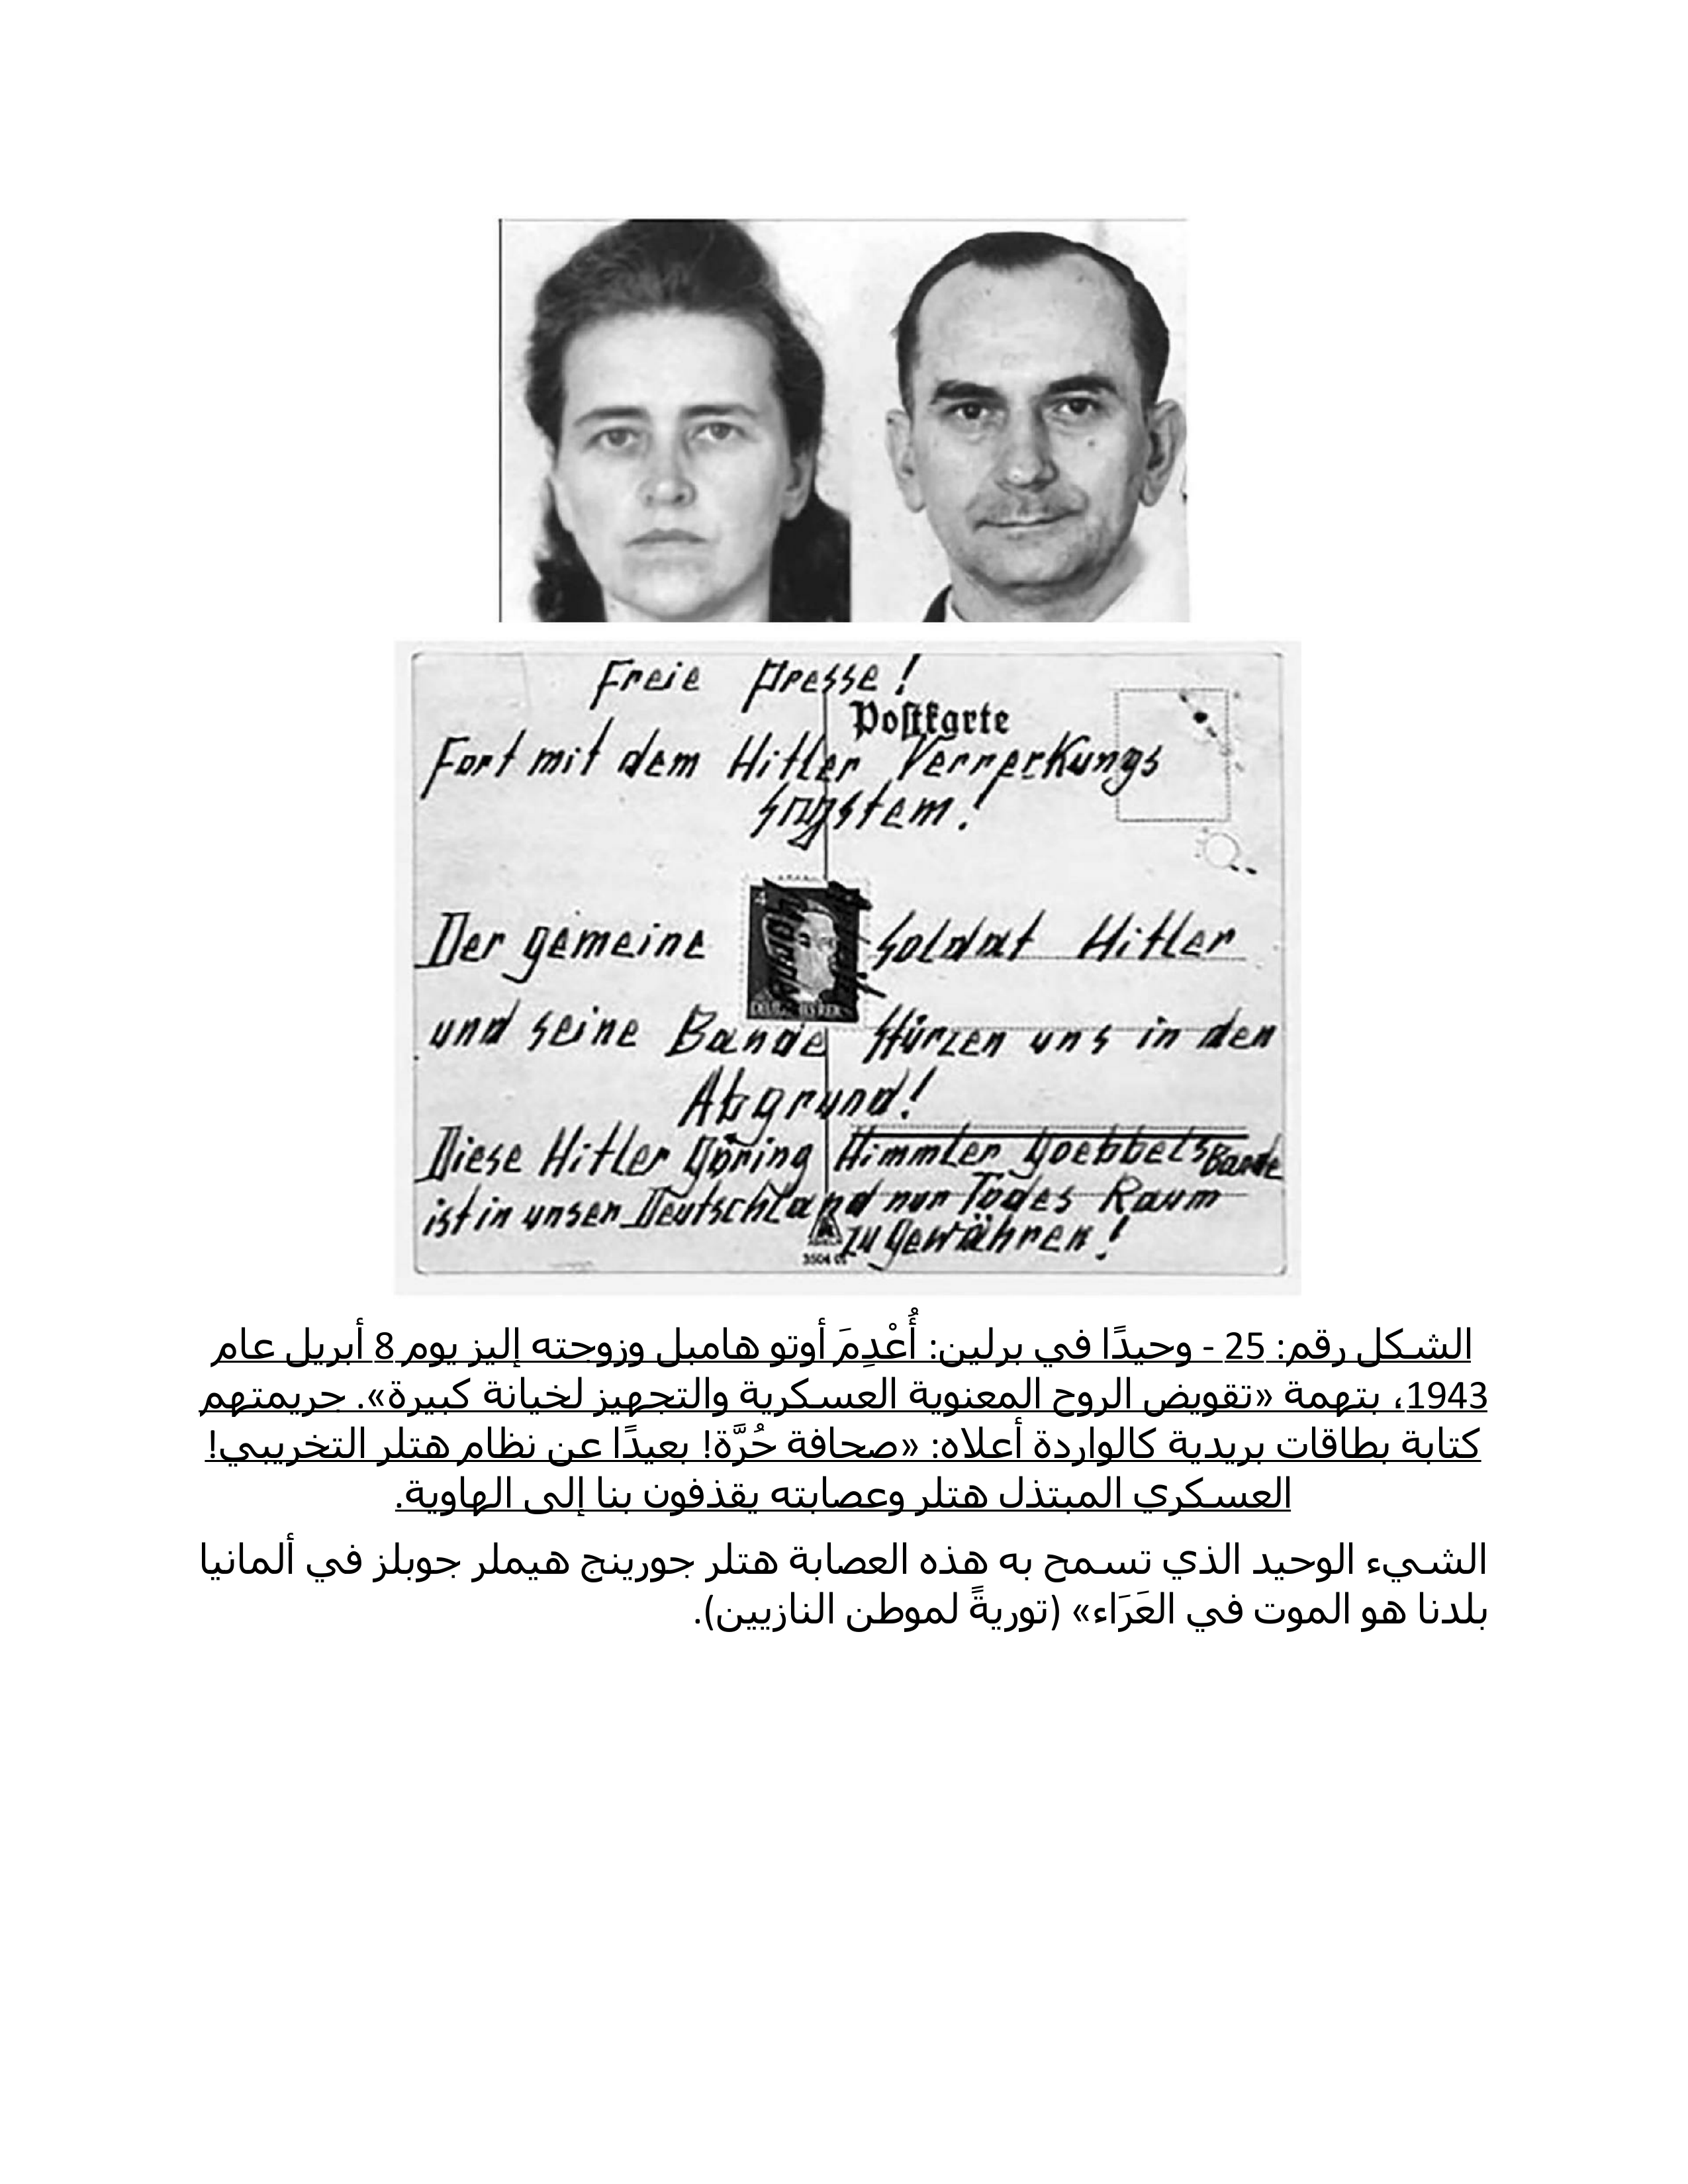 Freie Presse!
Postkarte
Fort mit dem Hitler Verreckungs
system!
Der gemeine Soldat Hitler
und seine Bande stürzen uns in den
Abgrund!
Diese Hitler Göring Himmler Goebbels Bande
ist in unser Deutschland nur Todes Raum
zu gewähren!
3504
الشكل رقم: 25 - وحيدًا في برلين: أُعْدِمَ أوتو هامبل وزوجته إليز يوم 8 أبريل عام
1943، بتهمة «تقويض الروح المعنوية العسكرية والتجهيز لخيانة كبيرة». جريمتهم
كتابة بطاقات بريدية كالواردة أعلاه: «صحافة حُرَّة! بعيدًا عن نظام هتلر التخريبي!
العسكري المبتذل هتلر وعصابته يقذفون بنا إلى الهاوية.
الشيء الوحيد الذي تسمح به هذه العصابة هتلر جورينج هيملر جوبلز في ألمانيا
بلدنا هو الموت في العَرَاء» (توريةً لموطن النازيين).